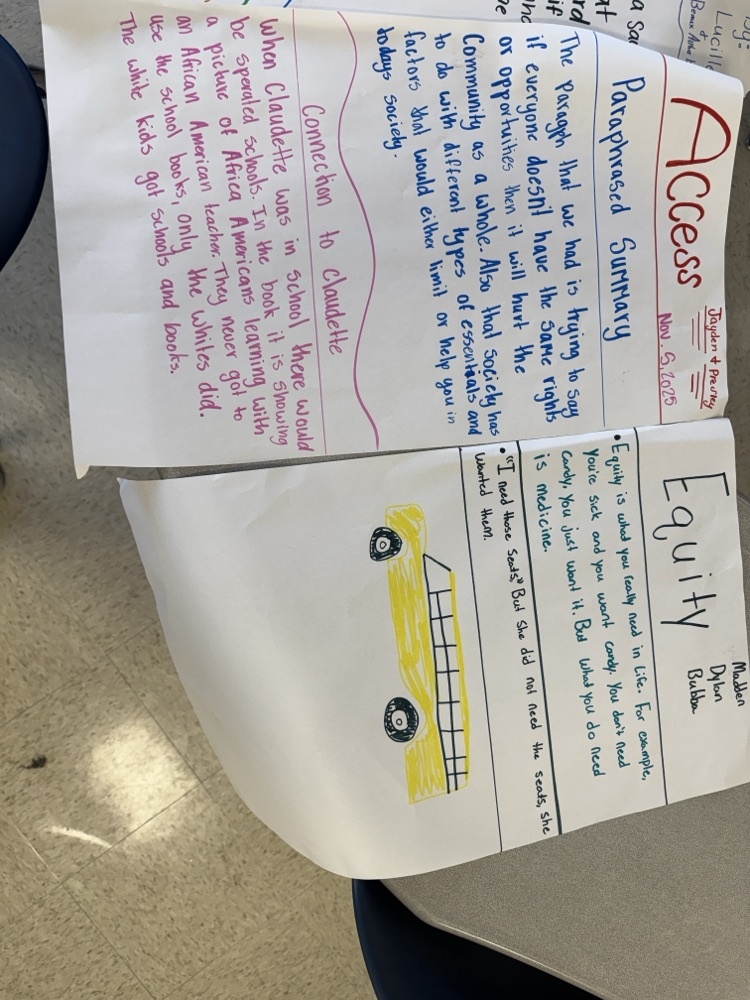 Access
Jayden + Presley
Nov. 5, 2025
Paraphrased Summary
The Paragph that we had is trying to say
if everyone doesn't have the same rights
or opportunities then it will hurt the
Community as a whole. Also that society has
to do with different types of essentials and
factors that would either limit or help you in
todays society.
Connection to Claudette
When Claudette was in school there would
be sperated schools. In the book it is showing
a picture of Africa Americans learning with
an African American teacher. They never got to
use the school books, only the whites did.
The white kids got schools and books.
Equity
Madden
Dylan
Bubba
• Equity is what you really need in life. For example,
you're sick and you want candy. You don't need
candy, you just want it. But what you do need
is medicine.
• "I need those seats," But she did not need the seats, she
wanted them.
by:
Lucille
+